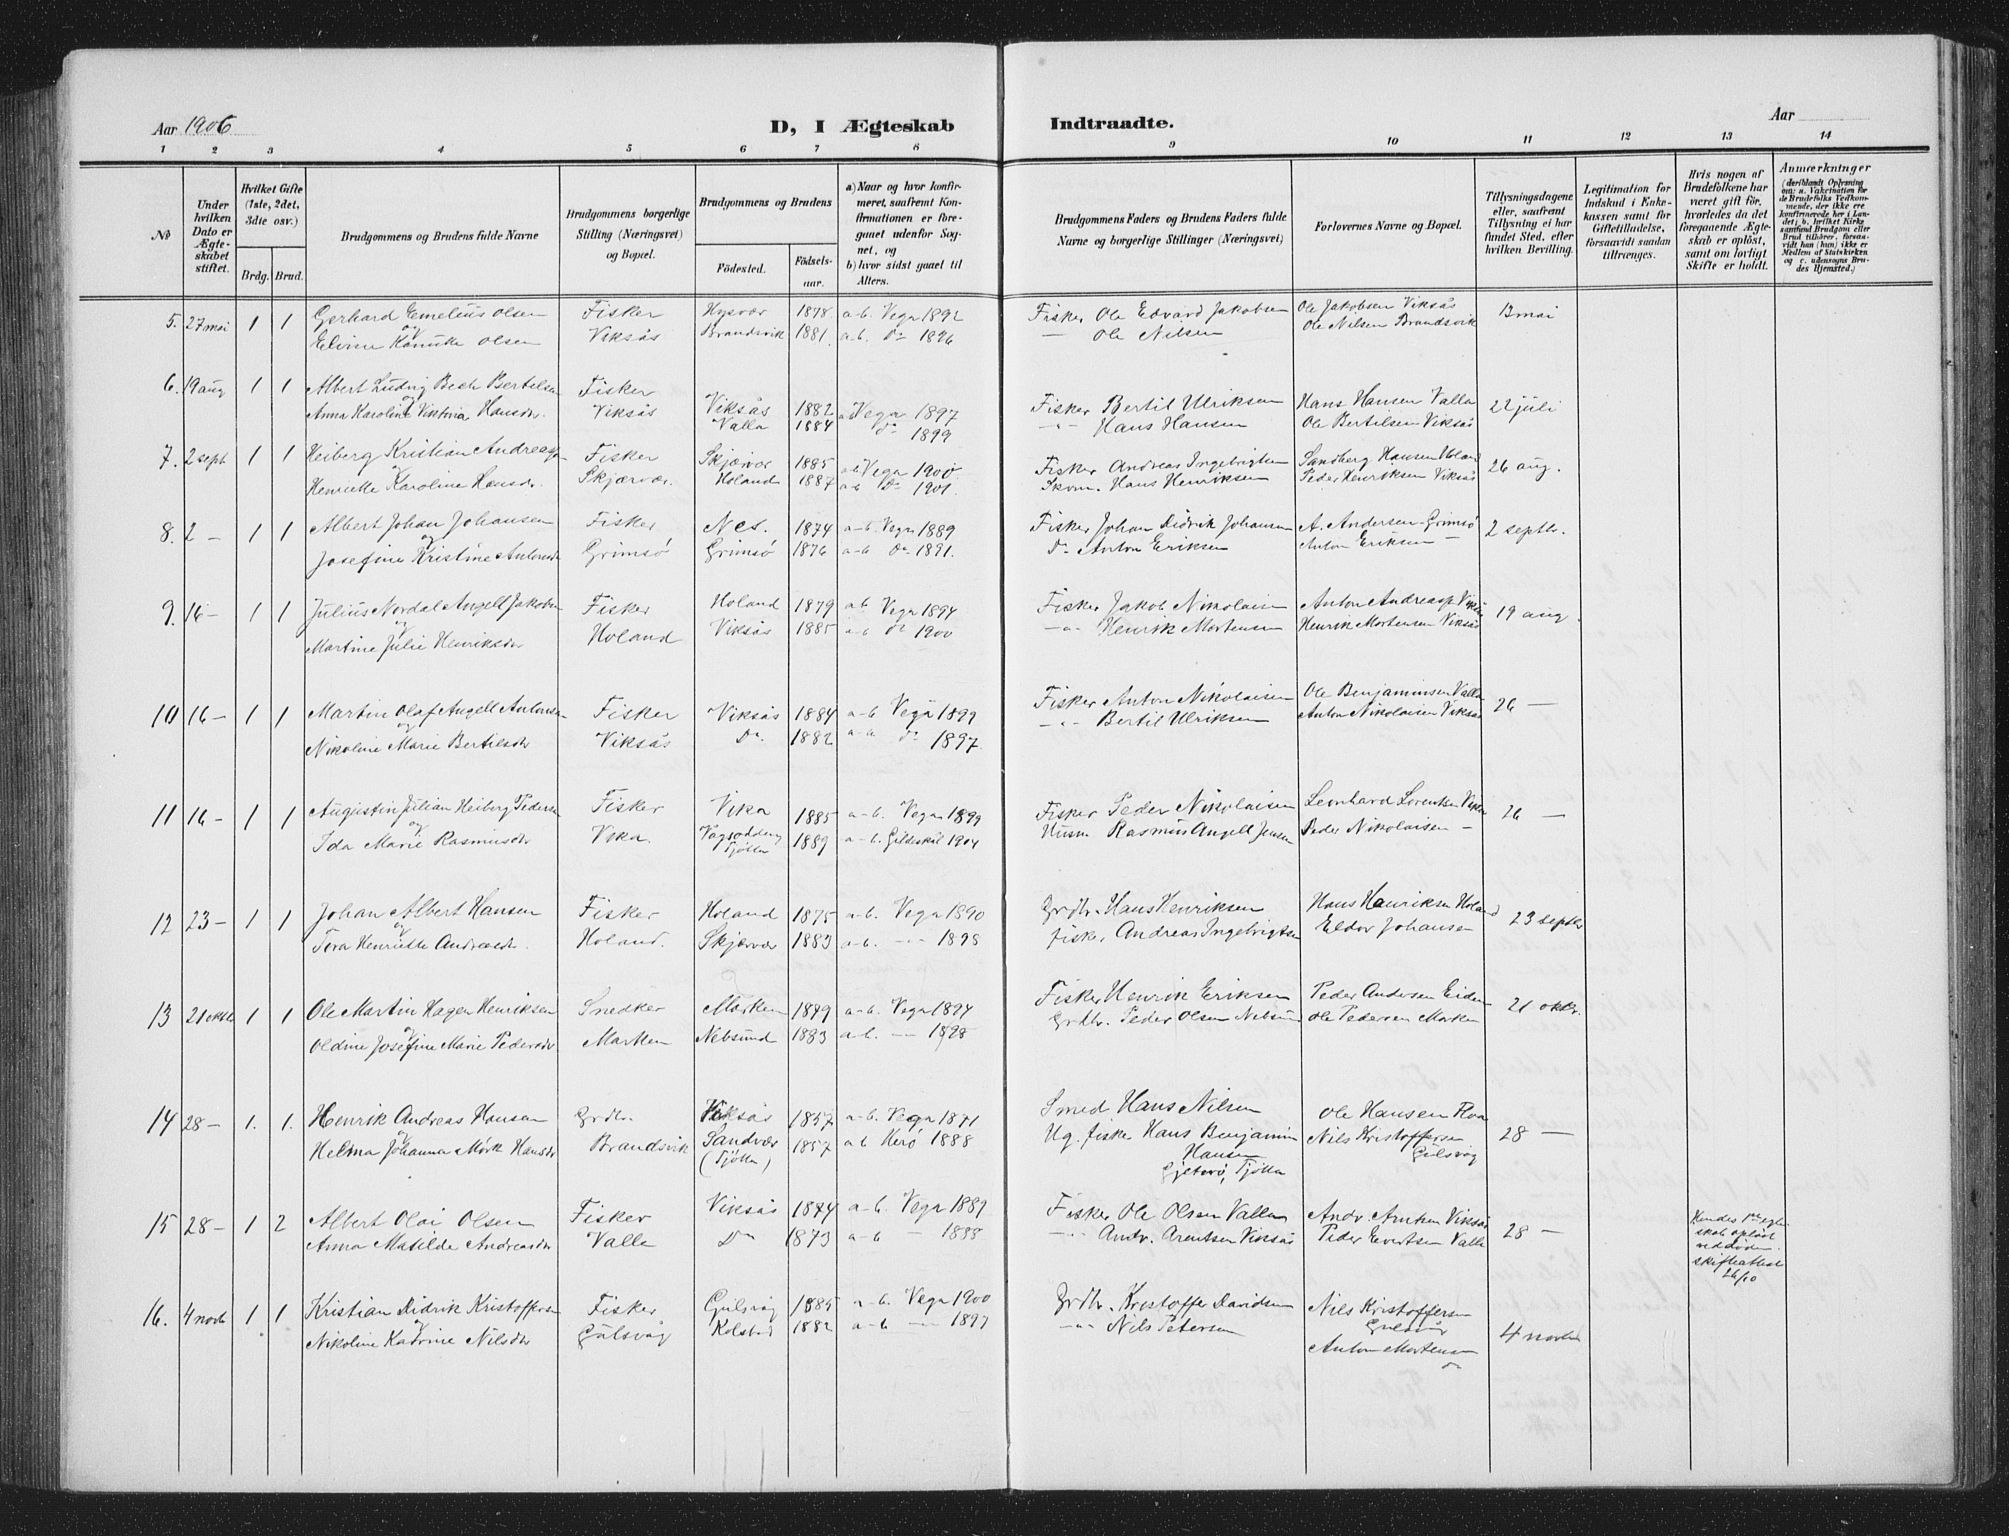 Aar 1906
D, I Ægteskab Indtraadte.
Aar
1 2 3 4 5 6 7 8 9 10 11 12 13 14
No
Under hvilken Dato er Ægteskabet stiftet.
Hvilket Gifte (1ste, 2det, 3die osv.)
Brdg. Brud.
Brudgommens og Brudens fulde Navne
Brudgommens borgerlige Stilling (Næringsvei) og Bopæl.
Brudgommens og Brudens
Fødested. Fødselsaar.
a) Naar og hvor konfirmeret, saafremt Konfirmationen er foregaaet udenfor Sognet, og
b) hvor sidst gaaet til Alters.
Brudgommens Faders og Brudens Faders fulde Navne og borgerlige Stillinger (Næringsvei)
Forlovernes Navne og Bopæl.
Tillysningsdagene eller, saafremt Tillysning ei har fundet Sted, efter hvilken Bevilling.
Legitimation for Indskud i Enkekassen samt for Giftetilladelse, forsaavidt saadan tiltrænges.
Hvis nogen af Brudefolkene har været gift før, hvorledes da det foregaaende Ægteskab er opløst, samt om lovligt Skifte er holdt.
Anmærkninger
(deriblandt Oplysning om: a. Vakcination for de Brudefolks Vedkommende, der ikke ere konfirmerede her i Landet; b. hvilket Kirkesamfund Brudgom eller Brud tilhører, forsaavidt han (hun) ikke er Medlem af Statskirken og c. udensogns Brudes Hjemsted.)
5. 27 mai 1 1 Gerhard Emelius Olsen Fisker Hysvær 1878 a-b. Vega 1892 Fisker Ole Edvard Jakobsen Ole Jakobsen Viksås 13 mai
og
Elvine Hansine Olsen Viksås Brandsvik 1881. a-b. Do 1896 — Ole Nilsen Ole Nilsen Brandsvik
6. 19 aug 1 1 Albert Ludvig Bech Bertelsen Fisker
og
Anna Karoline Viktoria Hansdr. Viksås Viksås 1882 ab Vega 1897 Fisker Bertil Ulriksen Hans Hansen Valla 22 juli
Valla 1884 Do 1899 -"- Hans Hansen Ole Bertilsen Viksås
7. 2 sept 1 1 Heiberg Kristian Andreass. Fisker Skjærvær 1885 a-b Vega 1900 Fisker Andreas Ingebrigtsen Sandberg Hansen Holand 26 aug.
og
Henriette Karoline Hansdr. Skjærvær. Holand 1887 a-b Do 1901. Skom. Hans Henriksen Peder Henriksen Viksås
8. 2 — 1 1 Albert Johan Johansen Fisker Nes. 1874 a-b Vega 1889 Fisker Johan Didrik Johansen A. Andersen Grimsø 2 septbr.
og
Josefine Kristine Antonsdr Grimsø Grimsø 1876 a-b Do 1891. Do Anton Eriksen Anton Eriksen —
9. 16 — 1 1 Julius Nordal Angell Jakobsen Fisker Holand 1879 a-b Vega 1894 Fisker Jakob Nikolaisen Anton Andreass. Viksås 19 aug.
og
Martine Julie Henriksdr Holand Viksås 1885 a-b do 1900 -"- Henrik Mortensen Henrik Mortensen Viksås
10 16 — 1 1 Martin Olaf Angell Antonsen Fisker Viksås 1884 a-b Vega 1899 Fisker Anton Nikolaisen Ole Benjaminsen Valla 26 —
og
Nikoline Marie Bertilsdr Viksås Do 1882 a-b do 1897. -"- Bertil Ulriksen Anton Nikolaisen Viksås
11 16 — 1 1 Augustin Julian Heiberg Pedersen Fisker Vika 1885 a-b. Vega 1899 Fisker Peder Nikolaisen Leonhard Lorentsen Vika 26 —
og
Ida Marie Rasmusdr Vika. Vågsodden Tjøtta 1889 a-b. Gildeskål 1904 Husm. Rasmus Angell Jensen Peder Nikolaisen —
12 23 — 1 1 Johan Albert Hansen Fisker Holand 1875 a-b. Vega 1890 Grdbr. Hans Henriksen Hans Henriksen Holand 23 septbr
og
Tora Henriette Andreasdr. Holand. Skjærvær 1883 a-b. — 1898 fisker Andreas Ingebrigtsen Eldor Johansen
13 21 oktbr 1 1 Ole Martin Hagen Henriksen Snedker Marken 1879 a-b. Vega 1894 Fisker Henrik Eriksen Peder Andersen Eidem 21 oktbr.
og
Oldine Josefine Marie Pedersdr Marken Nebsund 1883 a-b. — 1898 Grdbr. Peder Olsen Nebsund Ole Pedersen Marken
14 28 — 1. 1. Henrik Andreas Hansen Grdbr. Viksås 1857 a-b. Vega 1871 Smed Hans Nilsen Ole Hansen Floa 28 —
og
Helma Johanna Mørk Hansdr Brandsvik Sandvær (Tjøtta) 1857 a-b Herø 1888 Ug. fisker Hans Benjamin Hansen Nils Kristoffersen Gulsvåg
Gjeterø, Tjøtta
15 28 — 1 2 Albert Olai Olsen Fisker Viksås 1874 a-b. Vega 1889 Fisker Ole Olsen Valla Andr. Arntsen Viksås 28 — Hendes 1ste egteskab opløst ved døden. skifteattest 26/10
Anna Matilde Andreasdr Valla Do 1873 a-b — 1888 -"- Andr. Arentsen Viksås Peder Evertsen Valla
16. 4 novb 1 1 Kristian Didrik Kristoffersen Fisker Gulsvåg 1885 a-b. Vega 1900 Grdbr. Kristoffer Davidsen Nils Kristoffersen Gulsvåg 4 novbr
og
Nikoline Katrine Nilsdr Gulsvåg Kolstad 1882 a-b — 1897 -"- Nils Petersen Anton Mortensen do